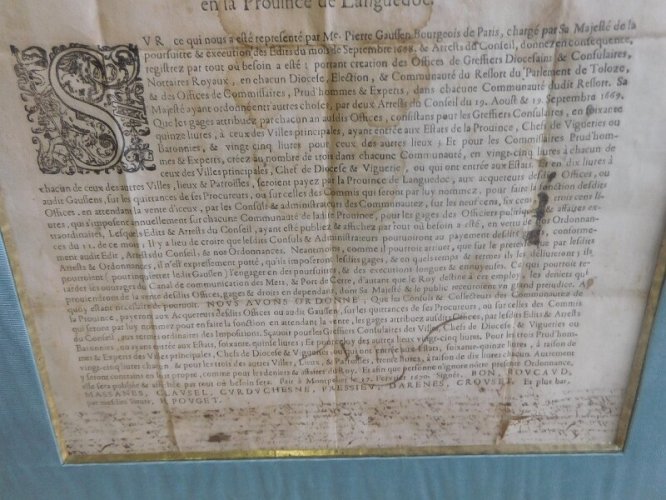 en la Province de Languedoc.
SVR ce qui nous a esté representé par Me. Pierre Gaussen Bourgeois de Paris, chargé par Sa Majesté de la
poursuitte & execution des Edits du mois de Septembre & Arrests du Conseil, donnez en consequence,
registrez par tout où besoin a esté; portant creation des Offices de Greffiers Diocesains & Consulaires,
Nottaires Royaux, en chacun Diocese, Election, & Communauté du Ressort du Parlement de Toloze,
& des Offices de Commissaires, Prud'hommes & Experts, dans chacune Communauté dudit Ressort. Sa
Majesté ayant ordonnent; autres choses, par deux Arrests du Conseil du 19. Aoust & 19. Septembre 1669.
Que les gages attribuez par chacun an ausdits Offices, consistans pour les Greffiers Consulaires, en soixante
quinze liures, à ceux des Villes principales, ayant entrée aux Estats de la Province, Chefs de Vigueries ou
Baronnies, & vingt cinq liures pour ceux des autres lieux; Et pour les Commissaires Prud'hom-
mes & Experts, créez au nombre de trois dans chacune Communauté, en vingt-cinq liures à chacun de
ceux des Villes principales, Chef de Diocese & Viguerie, ou qui ont entrée aux Estats. Et en dix liures à
chacun de ceux des autres Villes, lieux & Parroisses, seroient payez par la Province de Languedoc, aux acquereurs desdits Offices, ou
audit Gaussens, sur les quittances de ses Procureurs, ou sur celles des Commis qui seront par luy nommez, pour faire la fonction desdits
Offices, en attendant la vente d'iceux, par les Consuls & administrateurs des Communautez, sur les neuf cens, six cens
tures, qui s'imposent annuellement sur chacune Communauté de ladite Province, pour les gages des Officiers politiques & affaires ex-
traordinaires. Lesquels Edits & Arrests du Conseil, ayant esté publiez & affichez par tout où besoin a esté, en vertu de nos Ordonnan-
ces du 11. de ce mois; Il y a lieu de croire que lesdits Consuls & Administrateurs pourvoiront au payement desdits gages, conforme-
ment audit Edit, Arrests du Conseil, & nos Ordonnances. Neanmoins, comme il pourroit arriuer, que sur le pretexte que par lesdits
Arrests & Ordonnances, il n'est expressément porté, qui ils imposeront lesdits gages, & en quels temps & termes ils les deliureront; ils
pourroient constituer ledit Gaussen & l'engager en des poursuittes, & des executions longues & ennuyeuses. Ce qui pourroit re-
tarder les ouvrages du Canal de communication des Mers, & Port de Cette, d'autant que le Roy destine à cét employ les deniers qui
prouiendront de la vente desdits Offices, gages & droits en dependant, dont Sa Majesté & le public receuroient vn grand prejudice. A
quoy estant necessaire de pourvoir. NOVS AVONS ORDONNE; Que les Consuls & Collecteurs des Communautez de
la Province, payeront aux Acquereurs desdits Offices ou audit Gaussen, sur les quittances de ses Procureurs, ou sur celles des Commis
qui seront par luy nommez pour en faire la fonction en attendant la vente, les gages attribuez ausdits Offices, par lesdits Edits & Arrests
du Conseil, aux termes ordinaires des Impositions. Sçauoir pour les Greffiers Consulaires des Villes Chefs de Diocese, & Vigueries ou
Baronnies, ou ayant entrée aux Estats, soixante quinze liures; Et pour ceux des autres lieux vingt-cinq liures. Pour les trois Prud'hom-
mes & Experts des Villes principales, Chefs de Diocese & Vigueries ou ayant entrée aux Estats, soixante-quinze liures, à raison de
vingt-cinq liures chacun: & pour les trois des autres Villes, lieux, & Parroisses, trente liures, à raison de dix liures chacun. Autrement
y seront contraints en leur propre, comme pour les deniers & affaires du Roy. Et afin que personne n'ignore nostre presente Ordonnance,
elle sera publiée & affichée par tout où besoin sera. Fait à Montpelier le 17. Fevrier 1670. Signez, BON, ROVCAVD,
MASSANES, CLAVSEL, CVRDVCHESNE, PRESSIEV, DARENES, CROVSET. Et plus bas,
par mesdits Sieurs, POVGET.